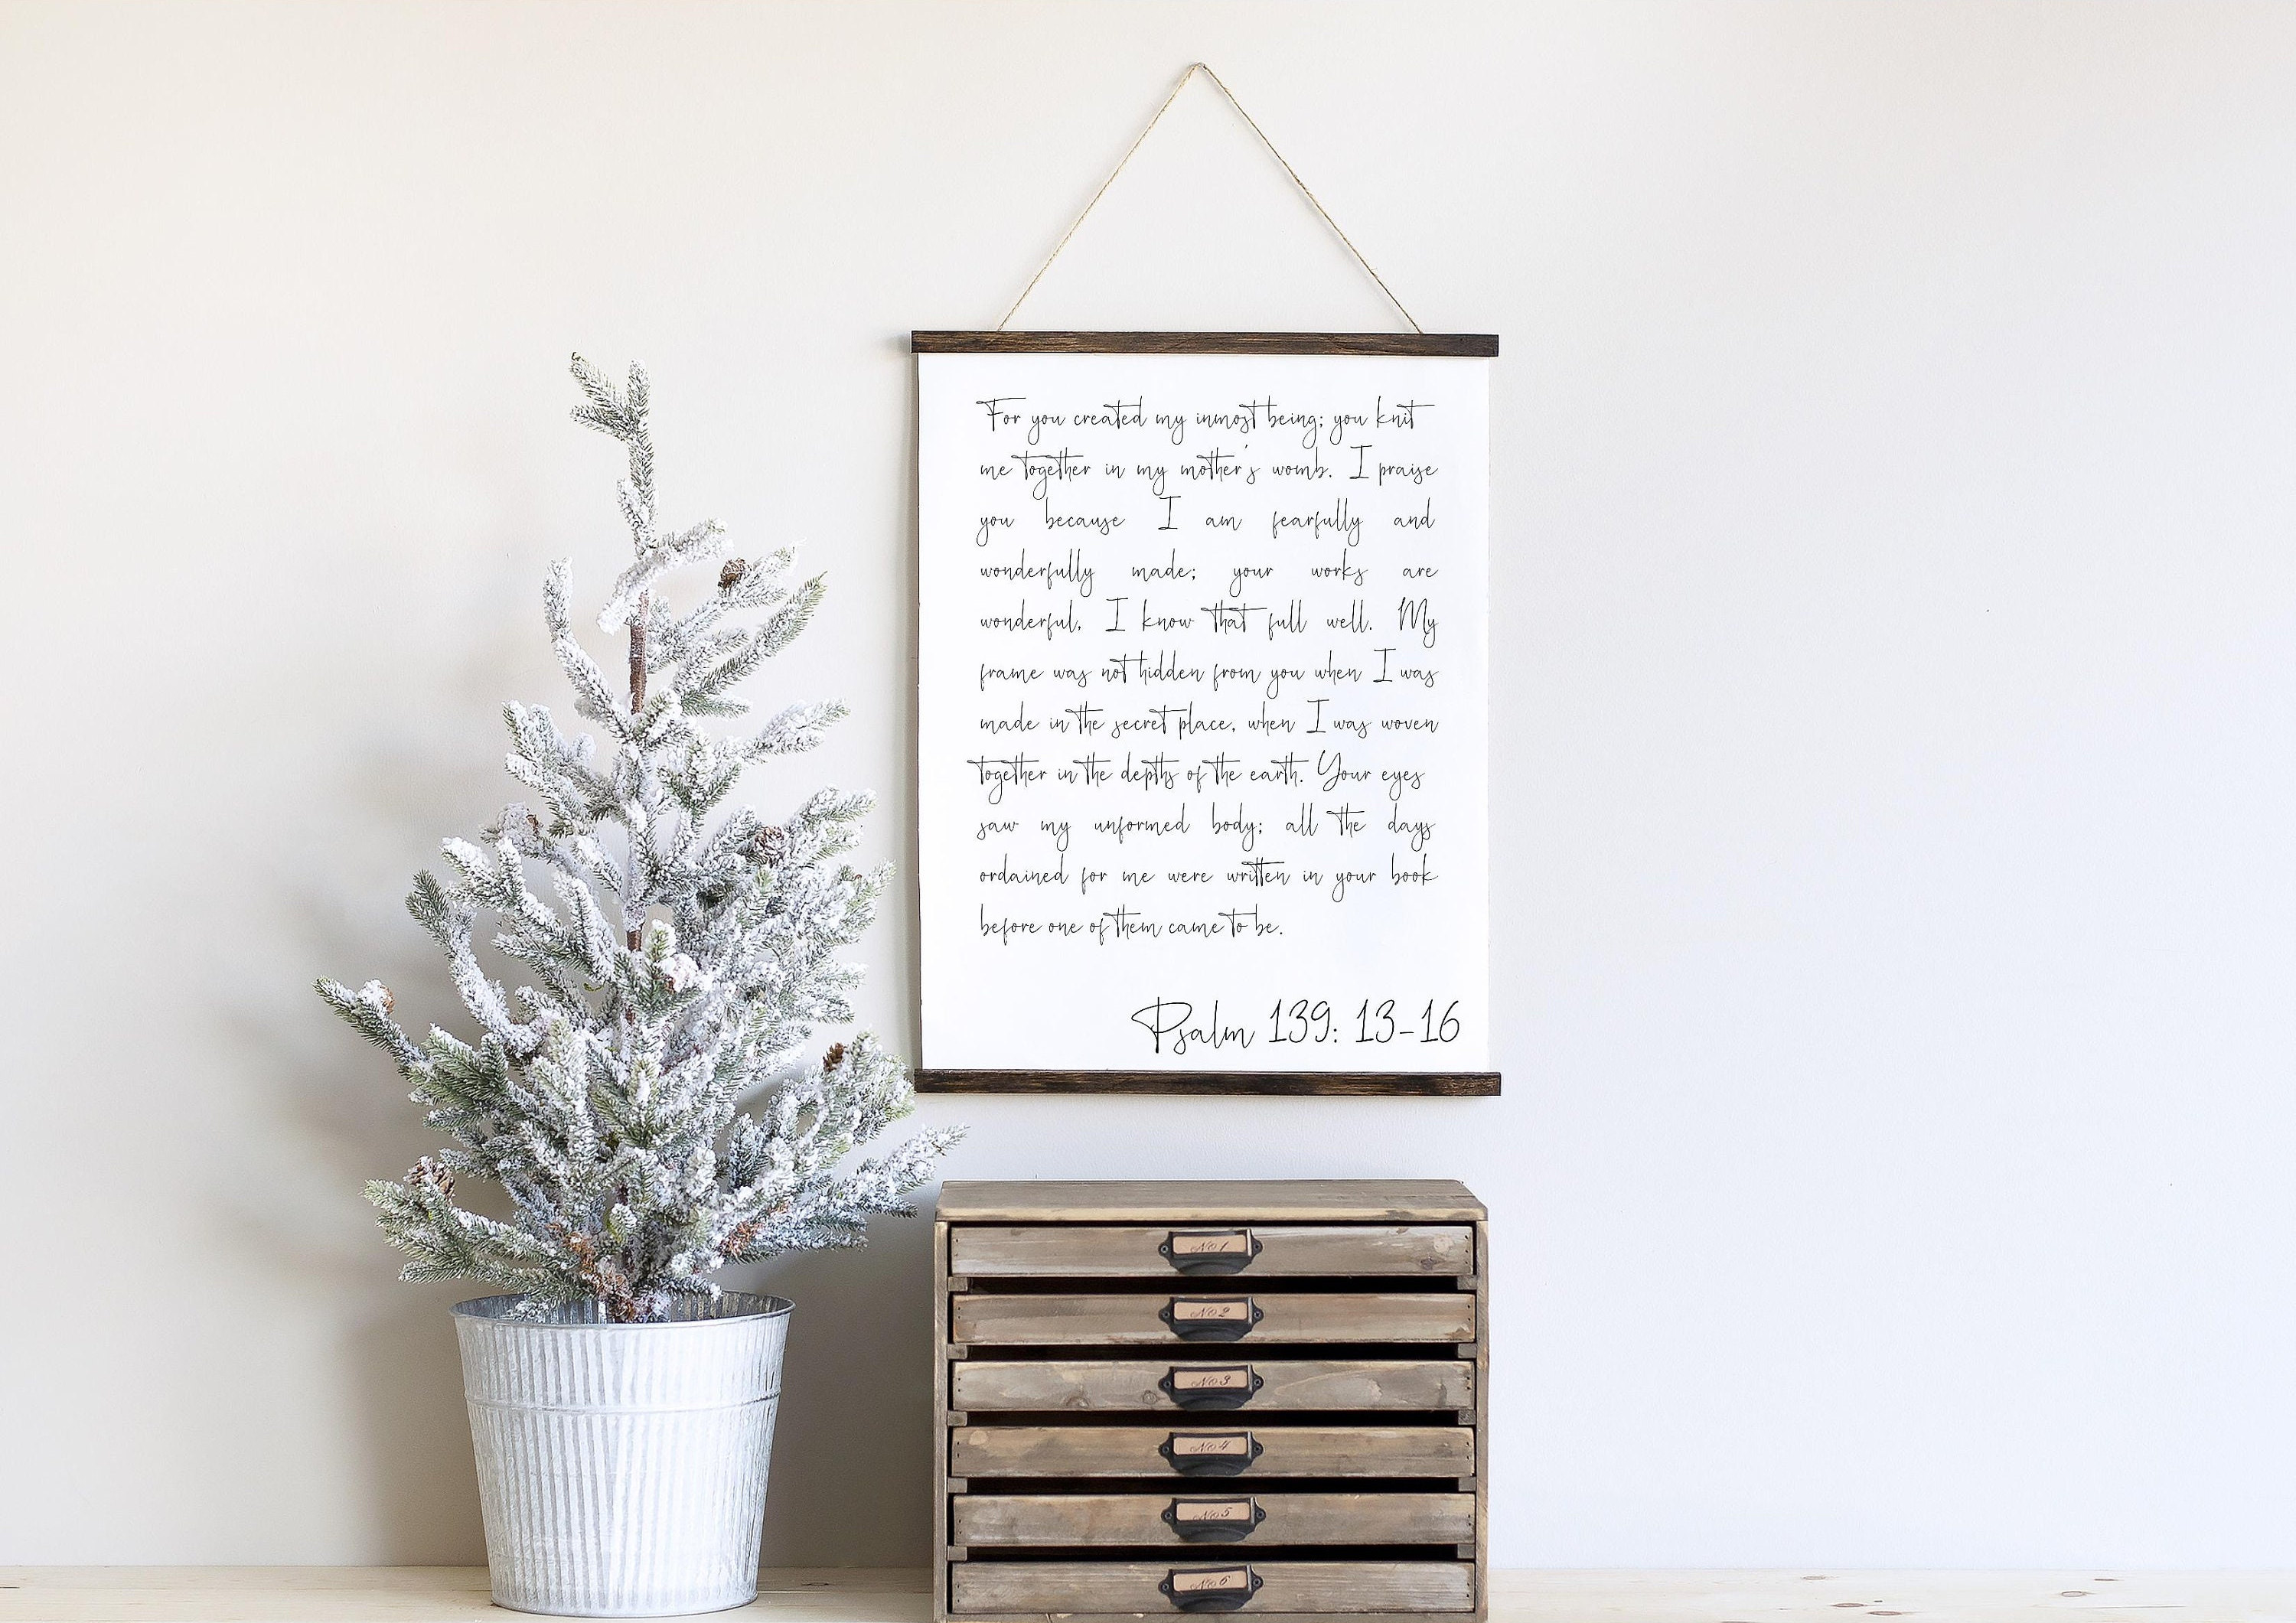 For you created my inmost being; you knit
me together in my mother's womb. I praise
you because I am fearfully and
wonderfully made; your works are
wonderful, I know that full well. My
frame was not hidden from you when I was
made in the secret place, when I was woven
together in the depths of the earth. Your eyes
saw my unformed body; all the days
ordained for me were written in your book
before one of them came to be.
Psalm 139: 13-16
No 1
No 2
No 3
No 4
No 5
No 6